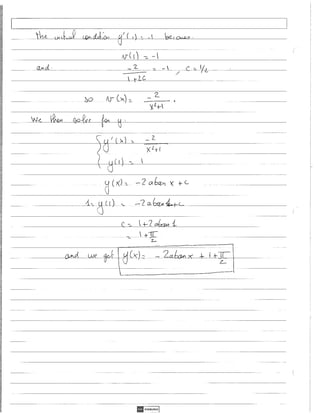 the initial condition y'(1) = -1 becomes
v(1) = -1
and -2/(1+2C) = -1, C = 1/2
so v(x) = -2/(x²+1).
We then solve for y:
{ y'(x) = -2/(x²+1)
{ y(1) = 1
y(x) = -2 atan x + c
1 = y(1) = -2 atan 1 + c
c = 1 + 2 atan 1
= 1 + π/2
and we get y(x) = -2 atan x + 1 + π/2